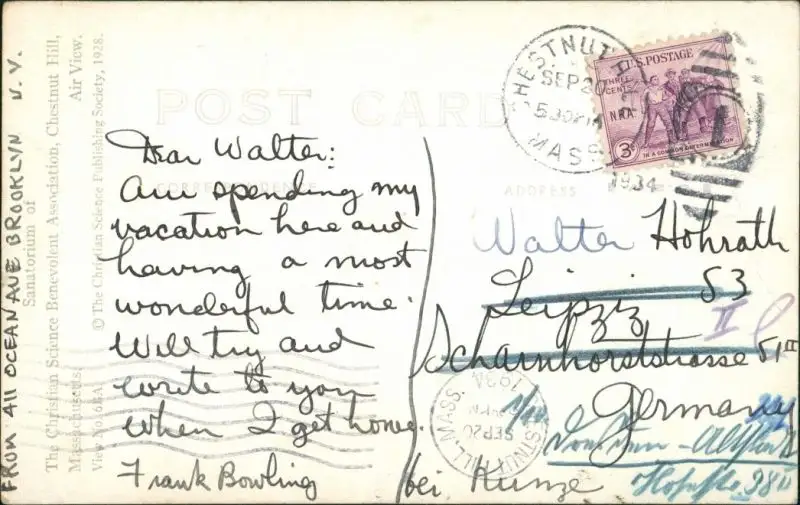 FROM 411 OCEAN AVE BROOKLYN N.Y.
Sanatorium of
The Christian Science Benevolent Association, Chestnut Hill,
Massachusetts. Air View.
View No. © The Christian Science Publishing Society, 1928.
POST CARD
CORRESPONDENCE
ADDRESS
Dear Walter:
Am spending my
vacation here and
having a most
wonderful time.
Will try and
write to you
when I get home.
Frank Bowling
CHESTNUT HILL
SEP 20
530PM
MASS.
1934
U.S. POSTAGE
THREE CENTS
NRA
3¢
IN A COMMON DETERMINATION
Walter Hohrath
Leipzig S3
II
Scharnhorststrasse 51 II
Germany
bei Kunze
CHESTNUT HILL MASS.
SEP 20
1934